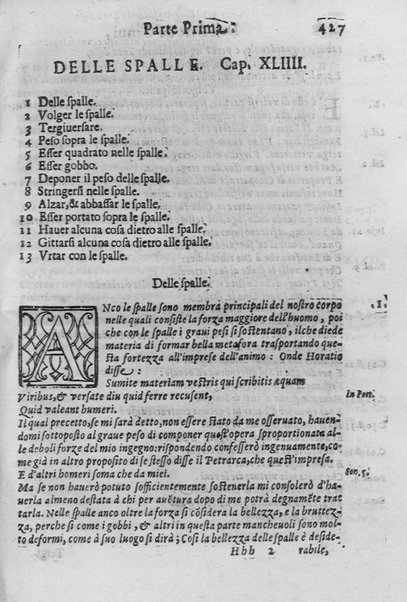 Parte Prima. 427
DELLE SPALLE. Cap. XLIIII.
1 Delle spalle.
2 Volger le spalle.
3 Tergiuersare.
4 Peso sopra le spalle.
5 Esser quadrato nelle spalle.
6 Esser gobbo.
7 Deponer il peso delle spalle.
8 Stringersi nelle spalle.
9 Alzar, & abbassar le spalle.
10 Esser portato sopra le spalle.
11 Hauer alcuna cosa dietro alle spalle.
12 Gittarsi alcuna cosa dietro alle spalle.
13 Vrtar con le spalle.
Delle spalle.
ANco le spalle sono membra principali del nostro corpo .1.
nelle quali consiste la forza maggiore dell'huomo, poi
che con le spalle i graui pesi si sostentano, ilche diede
materia di formar bella metafora trasportando que-
sta fortezza all'imprese dell'animo: Onde Horatio
disse:
Sumite materiam vestris qui scribitis æquam
Viribus, & versate diu quid ferre recusent, In Poet.
Quid valeant humeri.
Il qual precetto, se mi sarà detto, non essere stato da me osseruato, hauen-
domi sottoposto al graue peso di componer quest'opera sproportionata al-
le deboli forze del mio ingegno: rispondendo confesserò ingenuamente, co-
me già in altro proposito di se stesso disse il Petrarca, che quest'impresa.
E d'altri homeri soma che da miei. Son. 5.
Ma se non hauerò potuto sofficientemente sostenerla mi consolerò d'ha-
uerla almeno destata à chi per auẽtura dopo di me potrà degnamẽte trat
tarla. Nelle spalle anco oltre la forza si cõsidera la bellezza, e la bruttez-
za, perche si come i gobbi, & altri in questa parte mancheuoli sono mol-
to deformi, come à suo luogo si dirà; Così la bellezza delle spalle è deside-
Hhh 2 rabile,